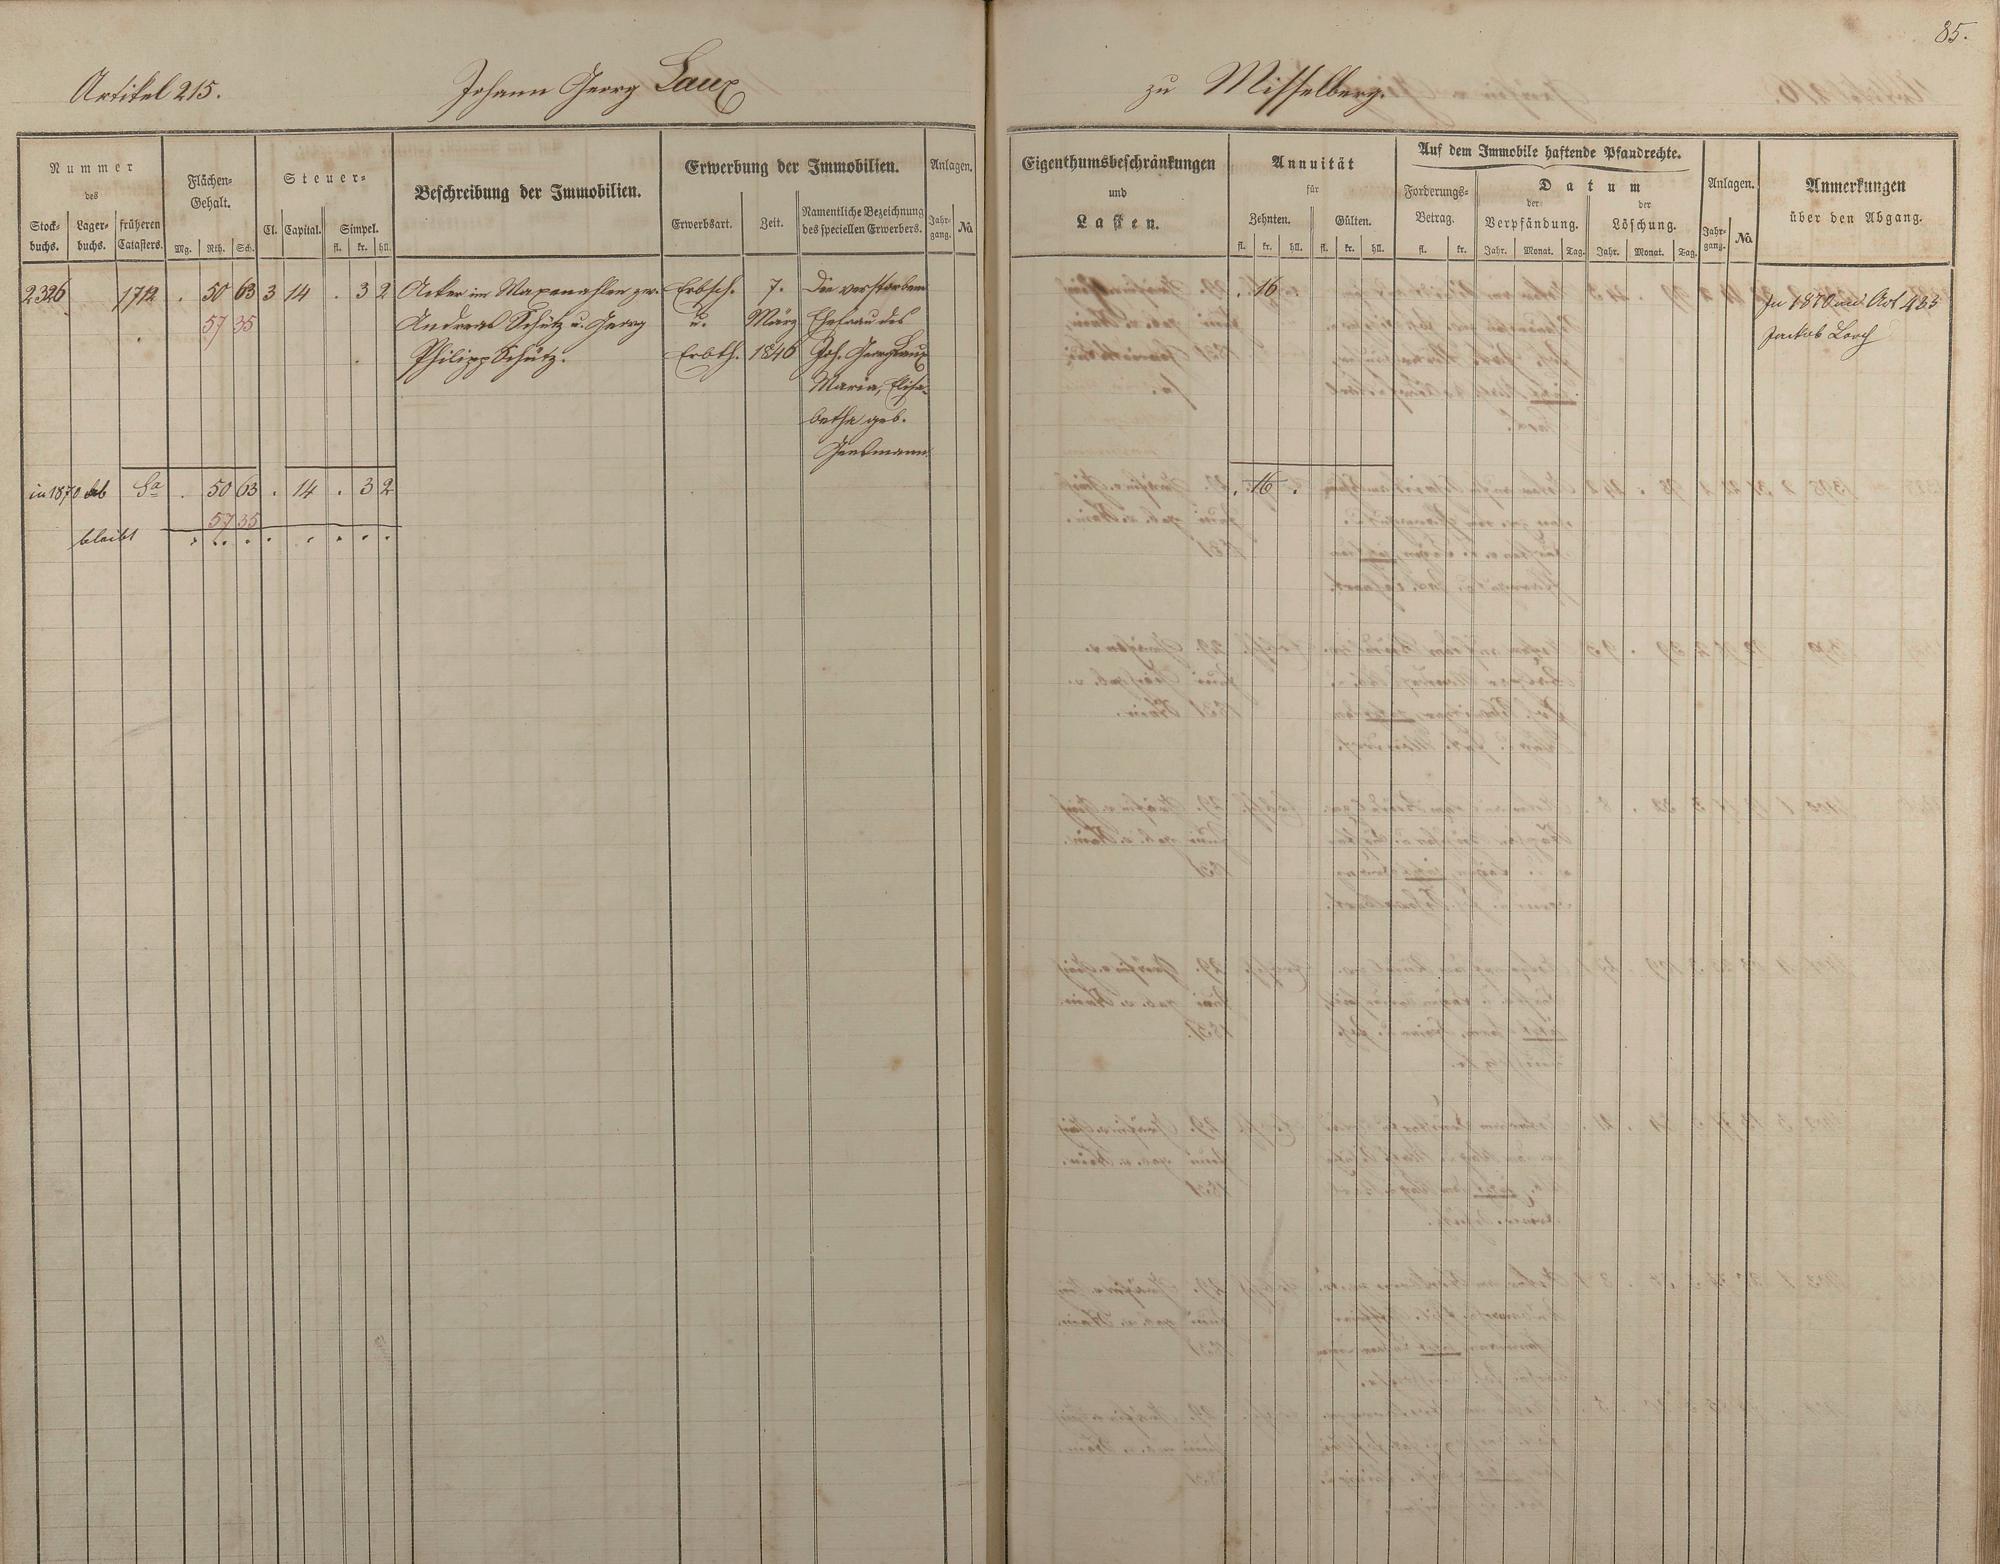 85.
Artikel 215. Johann Georg Laux zu Misselberg.
Nummer des
Stock-buchs. Lager-buchs. früheren Catasters.
Flächen-Gehalt.
Mg. Rth. Sch.
Steuer-
Cl. Capital. Simpel.
fl. kr. hll.
Beschreibung der Immobilien.
Erwerbung der Immobilien.
Erwerbsart. Zeit. Namentliche Bezeichnung des speciellen Erwerbers.
Anlagen.
Jahr-gang. No
Eigenthumsbeschränkungen
und
Lasten.
Annuität
für
Zehnten. Gülten.
fl. kr. hll. fl. kr. hll.
Auf dem Immobile haftende Pfandrechte.
Forderungs-Betrag.
fl. kr.
Datum
der Verpfändung. der Löschung.
Jahr. Monat. Tag. Jahr. Monat. Tag.
Anlagen.
Jahr-gang. No
Anmerkungen
über den Abgang.
2326 1712 . 50 63 3 14 . 3 2 Acker im zw. Erbsch. 7. Die verstorbene . 16 . In 1870 auf Art 433
57 35 Andreas Schütz u. Georg u. März Ehefrau des Jackob Lorch
Philipp Schütz. Erbth. 1846 Joh. Georg Laux
Maria, Elisa-
betha geb.
in 1870 ab Sa . 50 63 . 14 . 3 2 . 16 .
57 35
bleibt . . . . . . . .